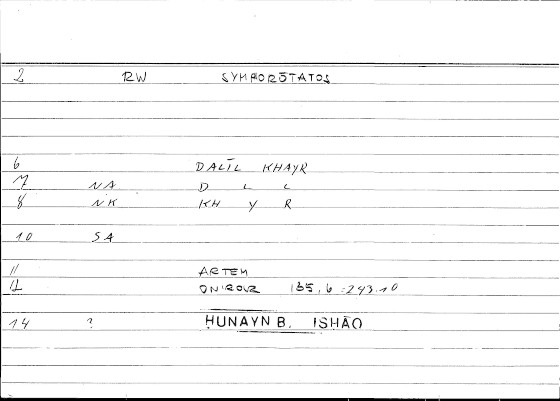 2 RW SYMFORŌTATOS
6 DALĪL KHAYR
7 NA D L L
8 NK KH Y R
10 SA
11 ARTEM
12 ONIROCR 135,6 =243.10
14 ? ḤUNAYN B. ISHĀQ